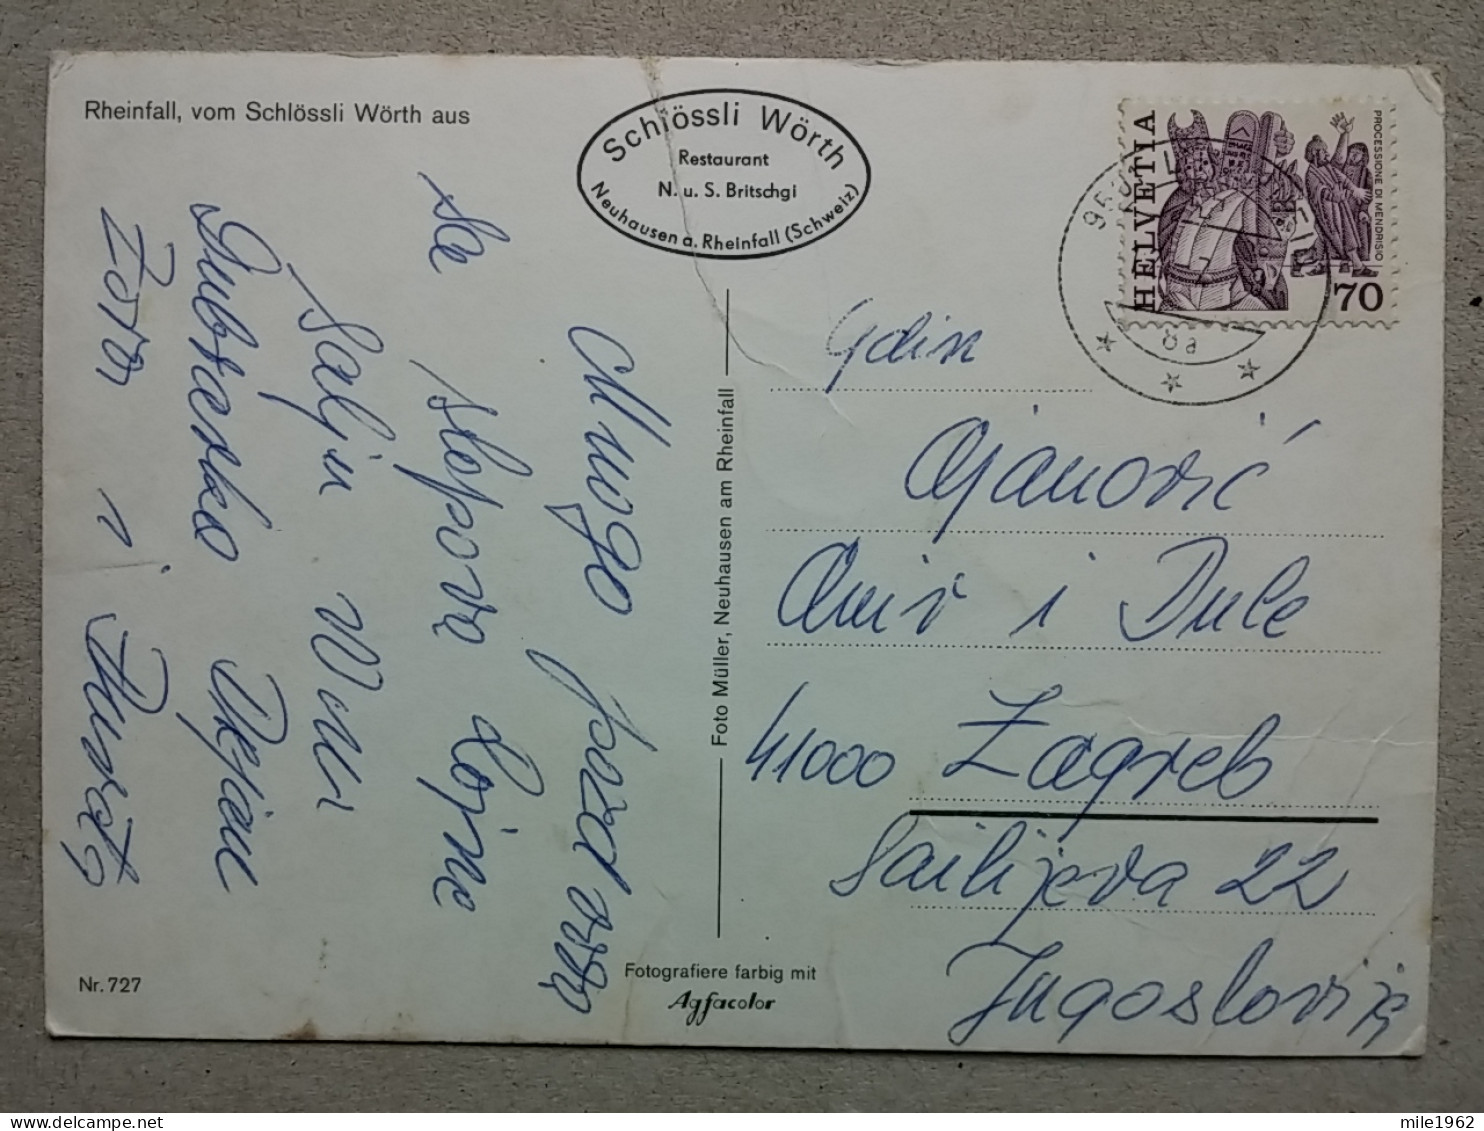 Rheinfall, vom Schlössli Wörth aus
Schlössli Wörth
Restaurant
N. u. S. Britschgi
Neuhausen a. Rheinfall (Schweiz)
HELVETIA
PROCESSIONE DI MENDRISIO
70
Mnogo pozdrava
sa slapova Rajne
Šalju Vam
Dubravko Dejan
Zora i
Foto Müller, Neuhausen am Rheinfall
Ajanović
i Dule
41000 Zagreb
22
Jugoslavija
Nr. 727
Fotografiere farbig mit
Agfacolor
mile1962